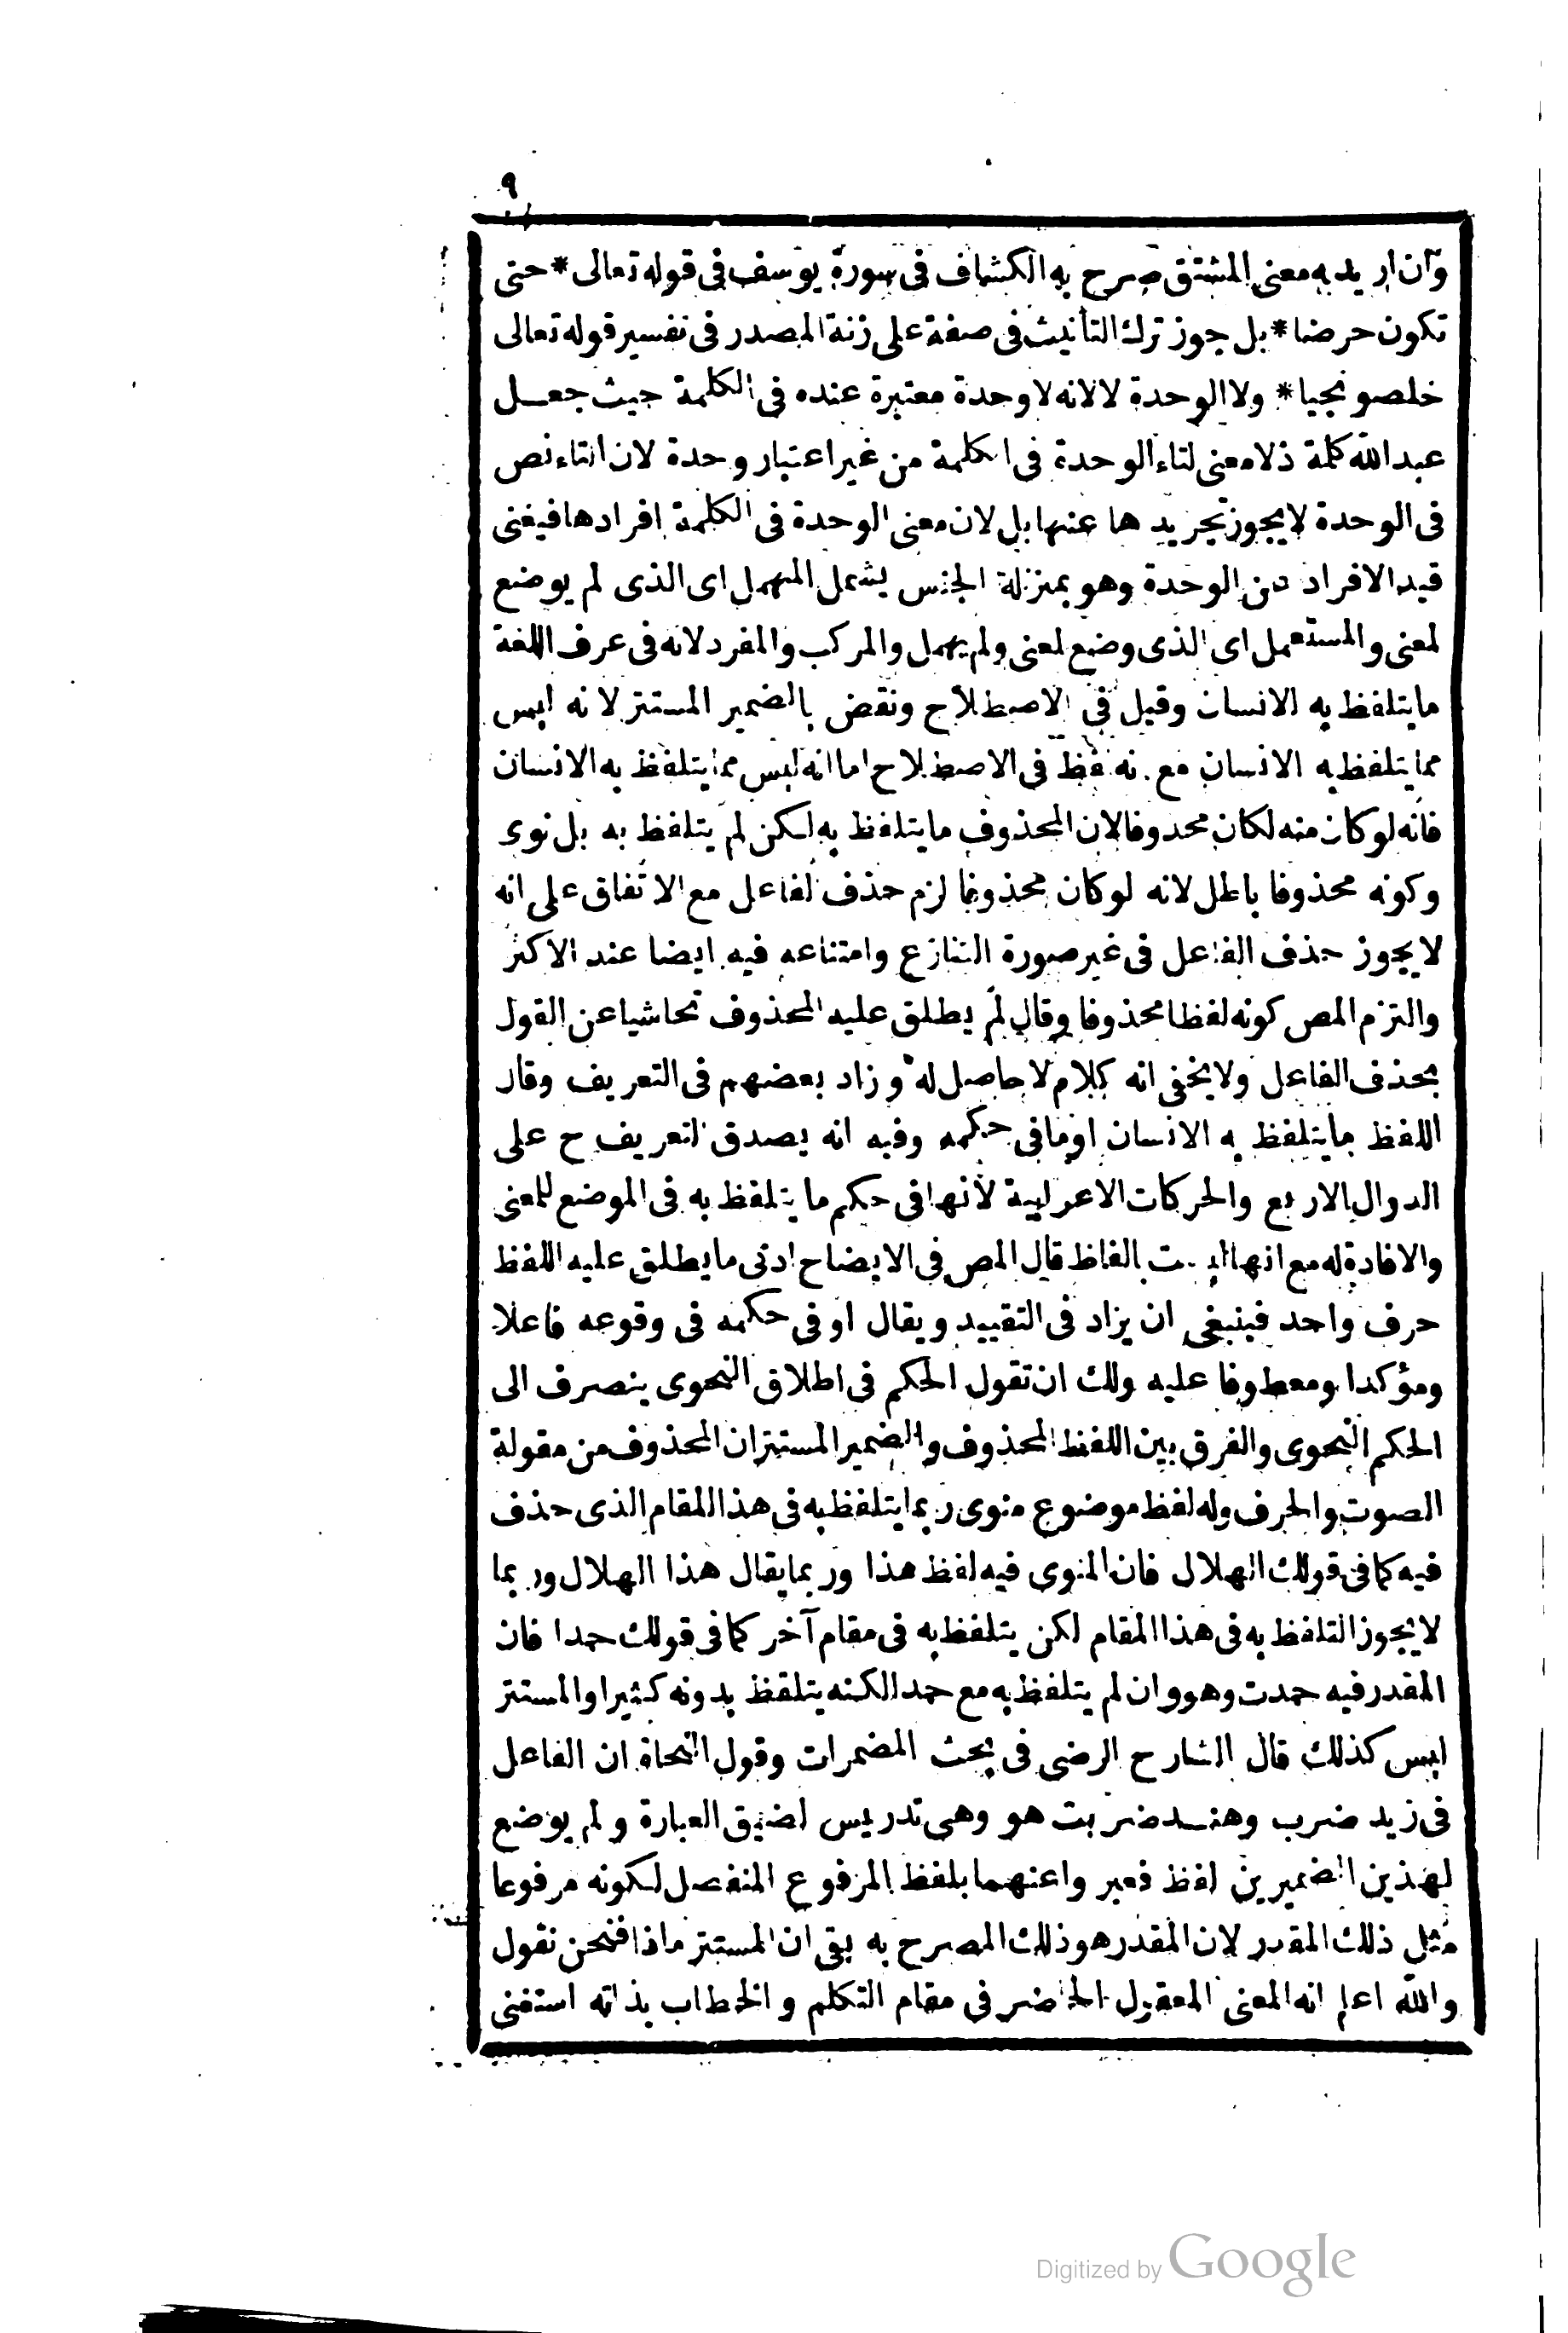 ٩
وان اريد به معنى المشتق صرح به الكشاف فى سورة يوسف فى قوله تعالى * حتى
تكون حرضا * بل جوز ترك التأنيث فى صفة على زنة المصدر فى تفسير قوله تعالى
خلصو نجيا * ولا الوحدة لا لانه لا وحدة معتبرة عنده فى الكلمة حيث جعل
عبد الله كلمة ذلا معنى لتاء الوحدة فى الكلمة من غير اعتبار وحدة لان التاء نص
فى الوحدة لا يجوز تجريدها عنها بل لان معنى الوحدة فى الكلمة افرادها فيغنى
قيد الافراد عن الوحدة وهو بمنزلة الجنس يشمل المهمل اى الذى لم يوضع
لمعنى والمستعمل اى الذى وضع لمعنى ولم يهمل والمركب والمفرد لانه فى عرف اللغة
ما يتلفظ به الانسان وقيل فى الاصطلاح ونقض بالضمير المستتر لانه ليس
مما يتلفظ به الانسان مع انه لفظ فى الاصطلاح اما انه ليس مما يتلفظ به الانسان
فانه لو كان منه لكان محذوفا لان المحذوف ما يتلفظ به لكن لم يتلفظ به بل نوى
وكونه محذوفا باطل لانه لو كان محذوفا لزم حذف الفاعل مع الاتفاق على انه
لا يجوز حذف الفاعل فى غير صورة التنازع وامتناعه فيه ايضا عند الاكثر
والتزم المص كونه لفظا محذوفا وقال لم يطلق عليه المحذوف تحاشيا عن القول
بحذف الفاعل ولا يخفى انه كلام لا حاصل له وزاد بعضهم فى التعريف وقال
اللفظ ما يتلفظ به الانسان او ما فى حكمه وفيه انه يصدق التعريف ح على
الدوال الاربع والحركات الاعرابية لانها فى حكم ما يتلفظ به فى الموضع للمعنى
والافادة له مع انها ليست بالفاظ قال المص فى الايضاح ادنى ما يطلق عليه اللفظ
حرف واحد فينبغى ان يزاد فى التقييد ويقال او فى حكمه فى وقوعه فاعلا
ومؤكدا ومعطوفا عليه ولك ان تقول الحكم فى اطلاق النحوى ينصرف الى
الحكم النحوى والفرق بين اللفظ المحذوف والضمير المستتر ان المحذوف من مقولة
الصوت والحرف وله لفظ موضوع منوى ربما يتلفظ به فى هذا المقام الذى حذف
فيه كما فى قولك الهلال فان المنوى فيه لفظ هذا وربما يقال هذا الهلال وربما
لا يجوز التلفظ به فى هذا المقام لكن يتلفظ به فى مقام آخر كما فى قولك حمدا فان
المقدر فيه حمدت وهو وان لم يتلفظ به مع حمدا لكنه يتلفظ بدونه كثيرا والمستتر
ليس كذلك قال الشارح الرضى فى بحث المضمرات وقول النحاة ان الفاعل
فى زيد ضرب وهند ضربت هو وهى تدريس لضيق العبارة ولم يوضع
لهذين الضميرين لفظ فعبر واعنهما بلفظ المرفوع المنفصل لكونه مرفوعا
مثل ذلك المقدر لان المقدر هو ذلك المصرح به بقى ان المستتر ماذا فنحن نقول
والله اعلم انه المعنى المعقول الحاضر فى مقام التكلم والخطاب بذاته استغنى
Digitized by Google